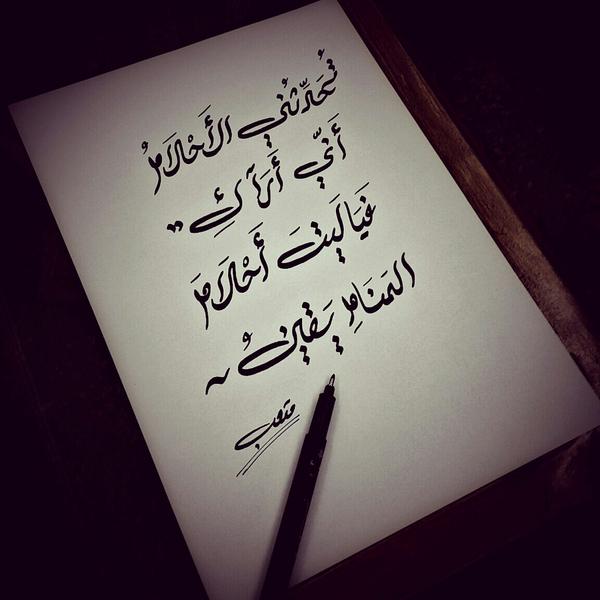 تُحَدِّثُني الأَحْلَامُ
أَنّي أَرَآكِ "
فَيَالَيتَ أَحْلَامَ
المَنَامِ يَقينُ ~
متعب